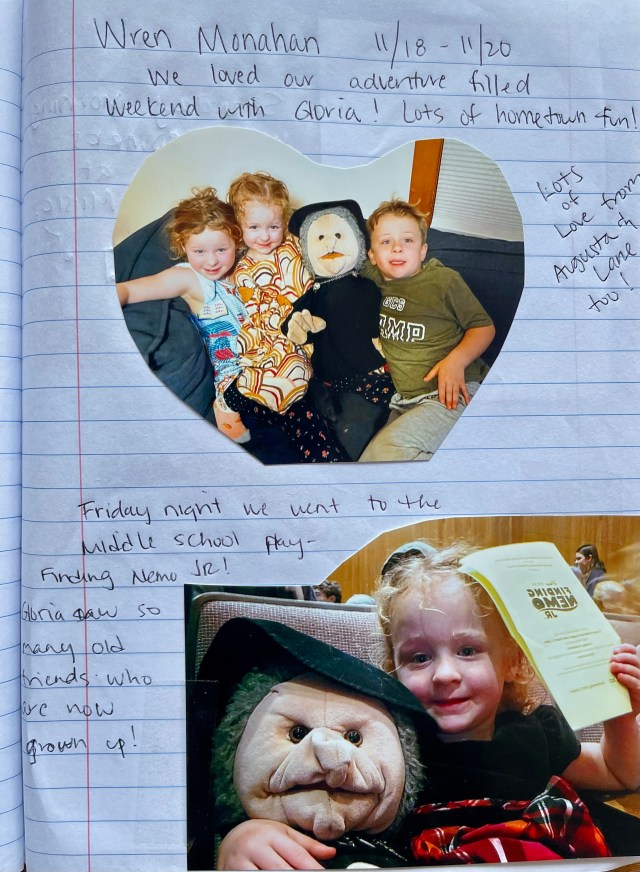 Wren Monahan 11/18 - 11/20
We loved our adventure filled
weekend with Gloria! Lots of hometown fun!
Lots
of
Love from
Augusta &
Lane
too!
GCS
AMP
Friday night we went to the
Middle School play-
Finding Nemo JR!
Gloria saw so
many old
friends who
are now
grown up!
FINDING
NEMO
JR